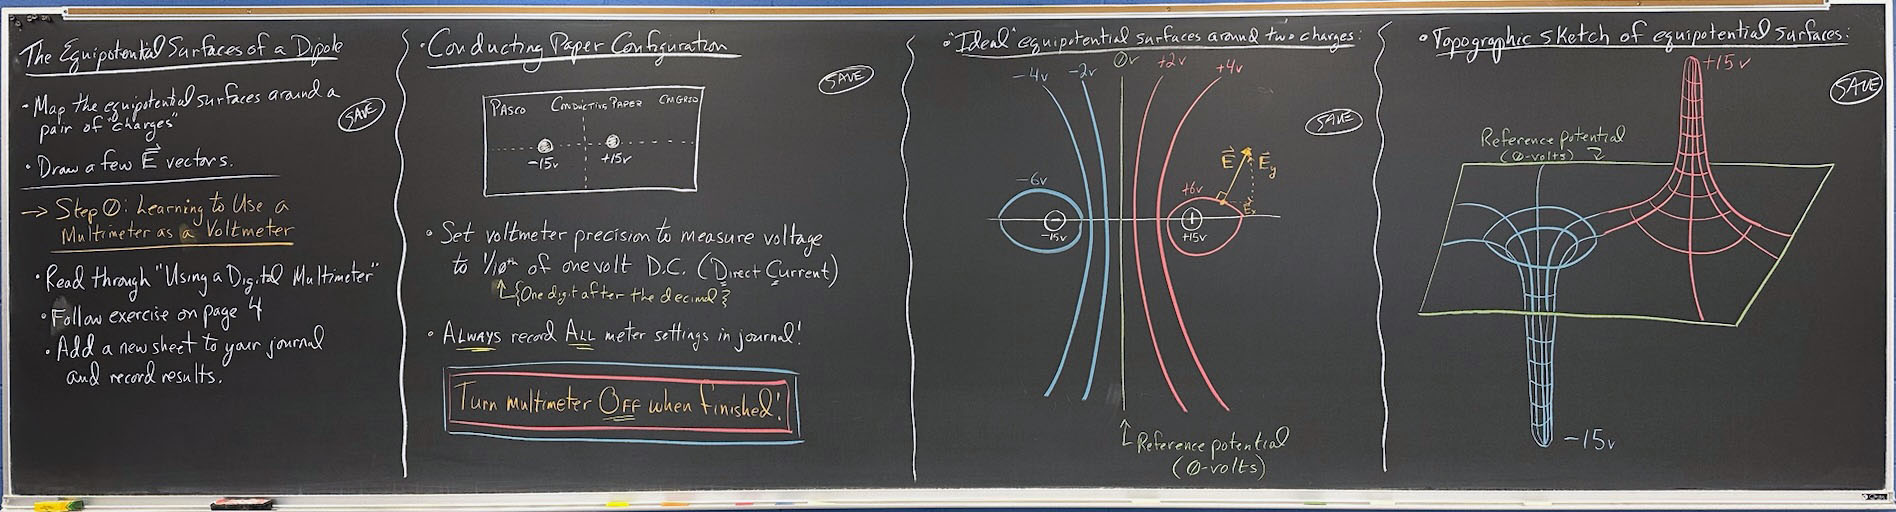 The Equipotential Surfaces of a Dipole
• Map the equipotential surfaces around a
pair of "charges"
SAVE
• Draw a few E⃗ vectors.
→ Step 0: Learning to Use a
Multimeter as a Voltmeter
• Read through "Using a Digital Multimeter"
• Follow exercise on page 4
• Add a new sheet to your journal
and record results.
• Conducting Paper Configuration
SAVE
PASCO CONDUCTING PAPER CM GRID
-15v +15v
• Set voltmeter precision to measure voltage
to 1/10th of one volt D.C. (Direct Current)
{One digit after the decimal}
• ALWAYS record ALL meter settings in journal!
Turn multimeter OFF when finished!
• "Ideal" equipotential surfaces around two charges:
-4v -2v 0v +2v +4v
SAVE
E⃗ E⃗y
-6v +6v Ex
- +
-15v +15v
Reference potential
(0-volts)
• Topographic sketch of equipotential surfaces:
+15v
SAVE
Reference potential
(0-volts)
-15v